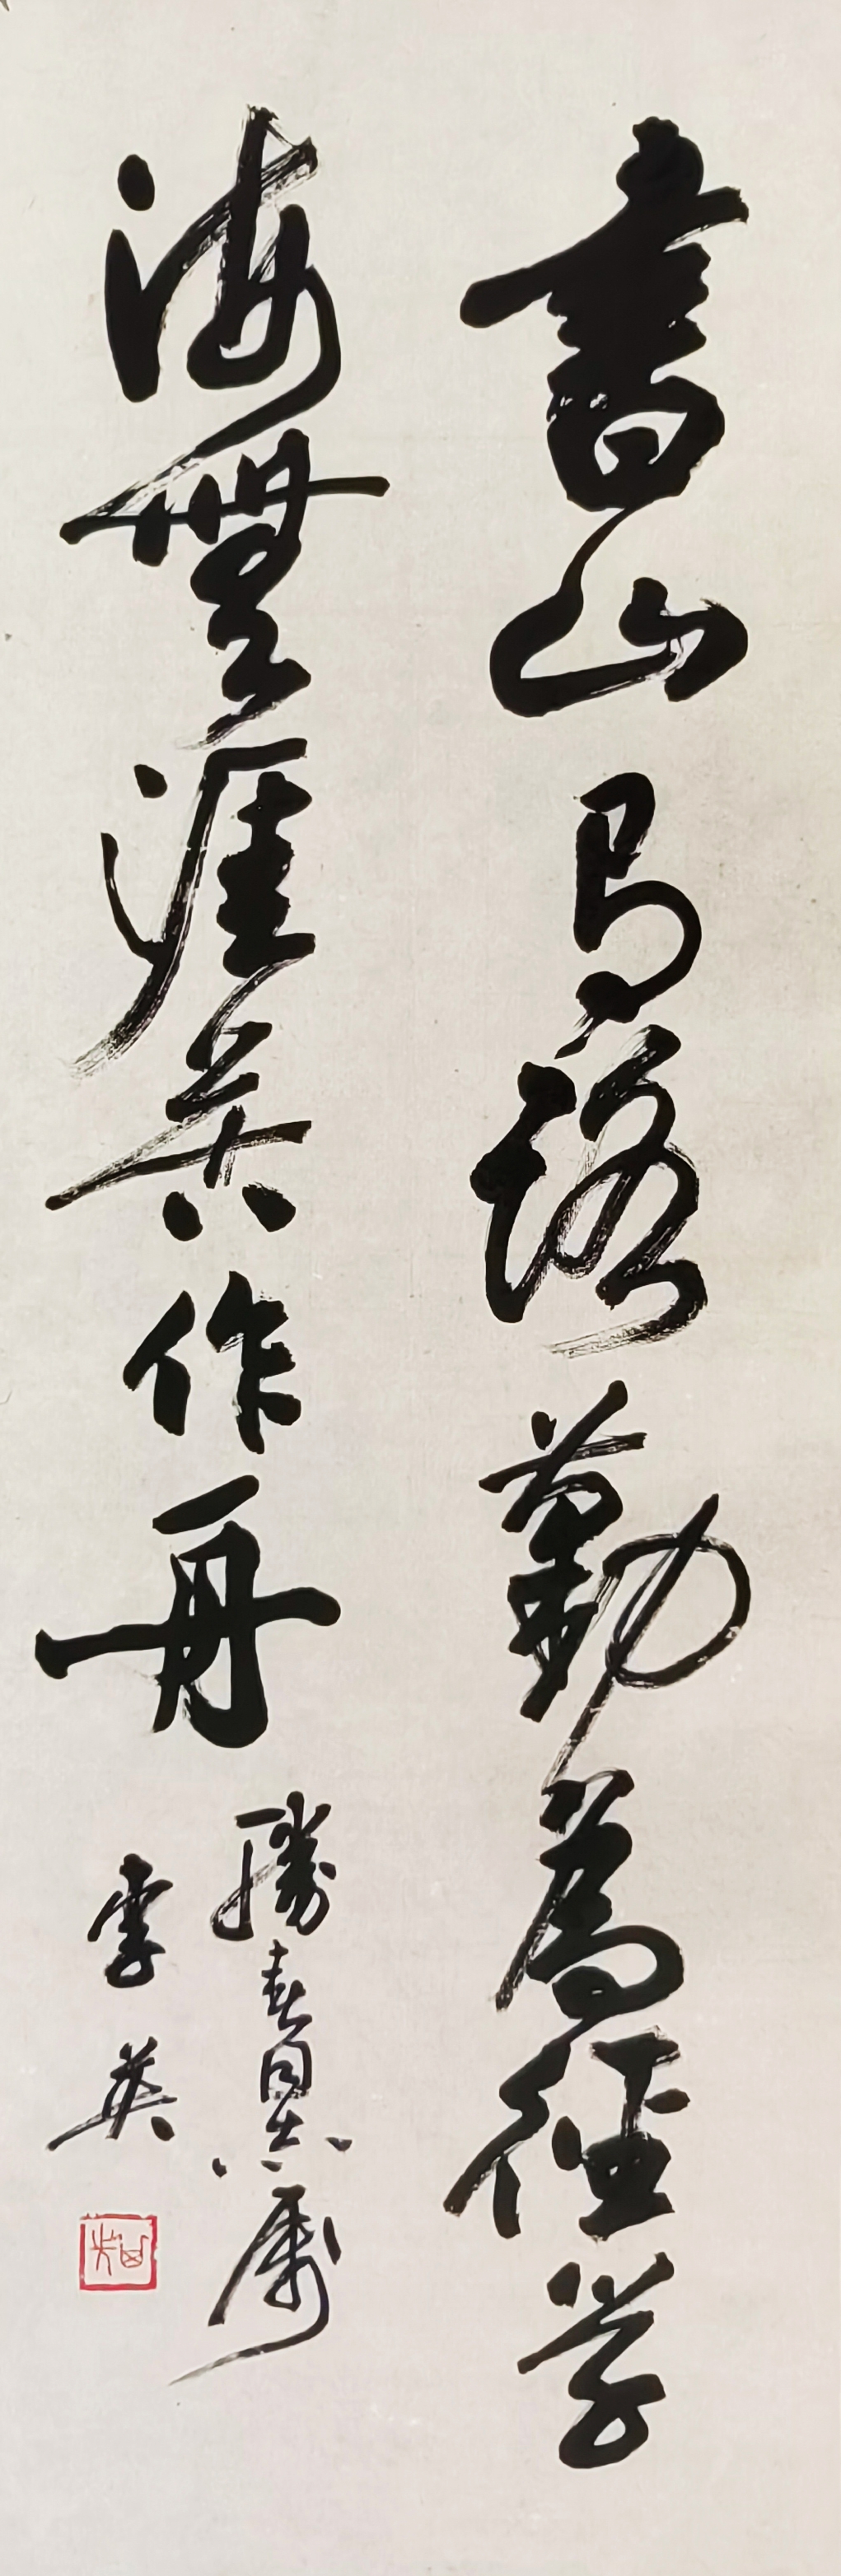 書山有路勤為徑学
海無涯苦作舟
勝春同志属
李英